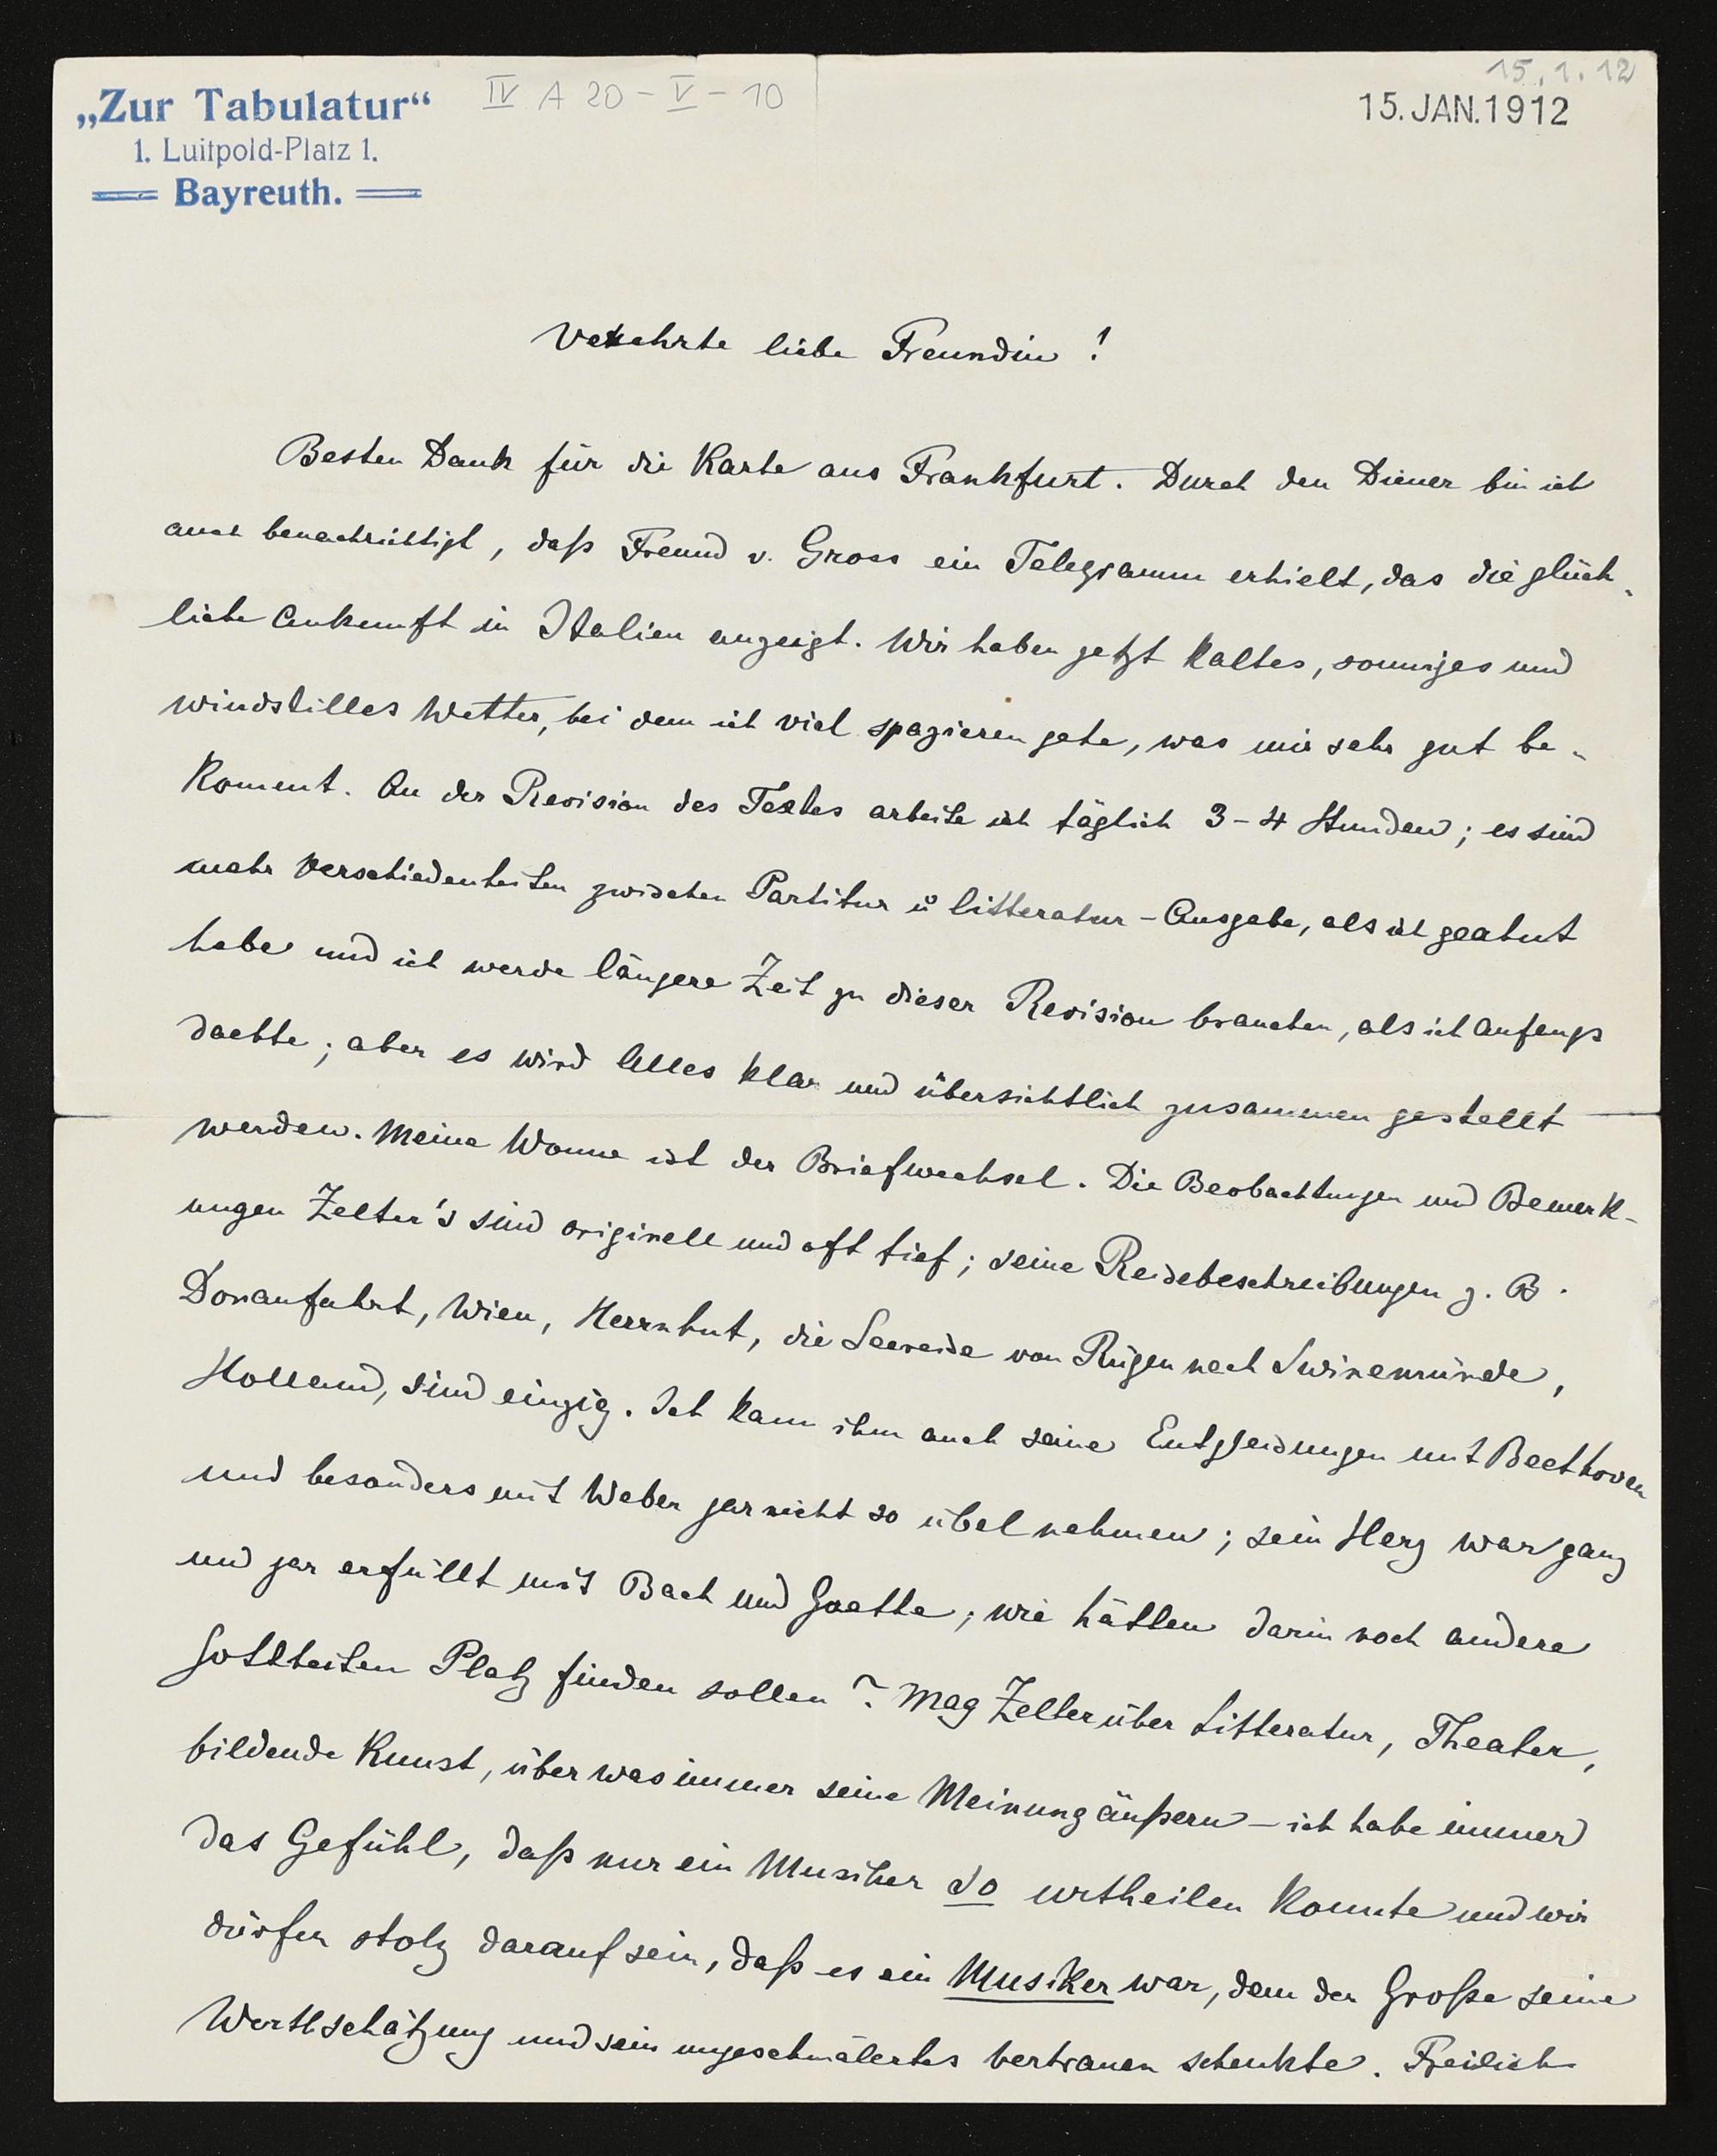 „Zur Tabulatur“
1. Luitpold-Platz 1.
Bayreuth.
IV A 20 - V - 10
15.1.12
15. JAN. 1912
Verehrte liebe Freundin!
Besten Dank für die Karte aus Frankfurt. Durch den Diener bin ich
auch benachrichtigt, daß Freund v. Gross ein Telegramm erhielt, das die glück-
liche Ankunft in Italien anzeigt. Wir haben jetzt kaltes, sonniges und
windstilles Wetter, bei dem ich viel spazieren gehe, was mir sehr gut be-
kommt. An der Revision des Textes arbeite ich täglich 3-4 Stunden; es sind
mehr Verschiedenheiten zwischen Partitur u Litteratur-Ausgabe, als ich geahnt
habe und ich werde längere Zeit zu dieser Revision brauchen, als ich Anfangs
dachte; aber es wird Alles klar und übersichtlich zusammen gestellt
werden. Meine Wonne ist der Briefwechsel. Die Beobachtungen und Bemerk-
ungen Zelter's sind originell und oft tief; seine Reisebeschreibungen z. B.
Donaufahrt, Wien, Herrnhut, die Seereise von Rügen nach Swinemünde,
Holland, sind einzig. Ich kann ihm auch seine Entgleisungen mit Beethoven
und besonders mit Weber gar nicht so übel nehmen; sein Herz war ganz
und gar erfüllt mit Bach und Goethe; wie hätten darin noch andere
Gottheiten Platz finden sollen? Mag Zelter über Litteratur, Theater,
bildende Kunst, über was immer seine Meinung äußern – ich habe immer
das Gefühl, daß nur ein Musiker so urtheilen konnte und wir
dürfen stolz darauf sein, daß es ein Musiker war, dem der Große seine
Werthschätzung und sein ungeschmälertes Vertrauen schenkte. Freilich